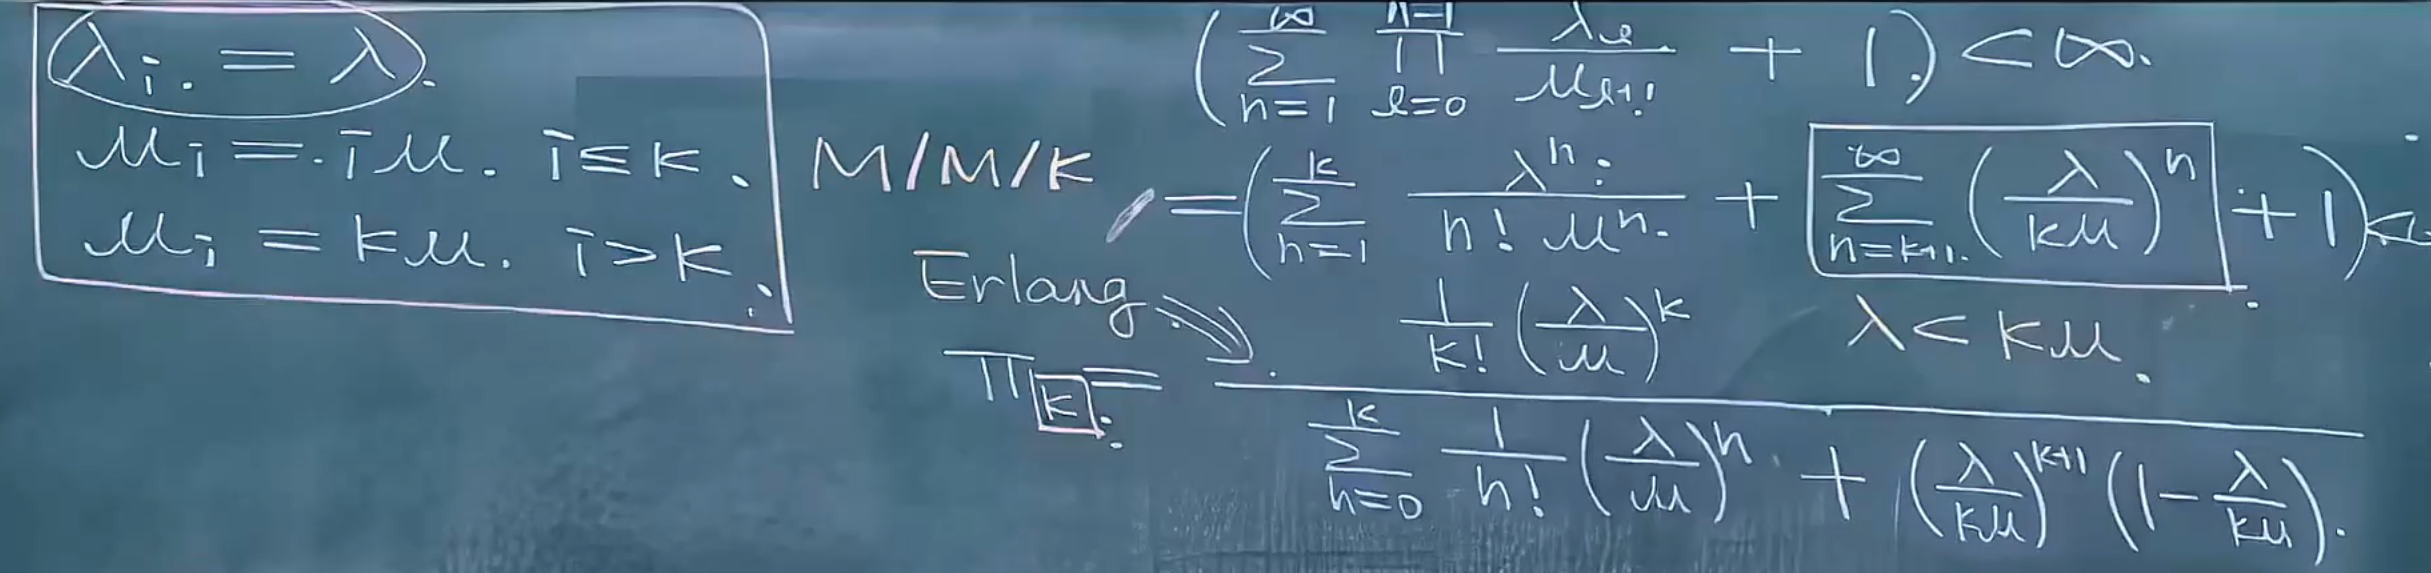 λ_i. = λ.
μ_i = i μ. i ≤ k.
μ_i = kμ. i > k.
M/M/K
Erlang
( ∑_{n=1}^{∞} ∏_{ℓ=0}^{n-1} λ_ℓ / μ_{ℓ+1} + 1. ) < ∞.
= ( ∑_{n=1}^{k} λ^n / (n! μ^n) + ∑_{n=k+1}^{∞} ( λ / kμ )^n + 1 ) <
λ < kμ.
π_k = [ 1/k! ( λ/μ )^k ] / [ ∑_{n=0}^{k} 1/n! ( λ/μ )^n + ( λ/kμ )^{k+1} ( 1 - λ/kμ ) ].